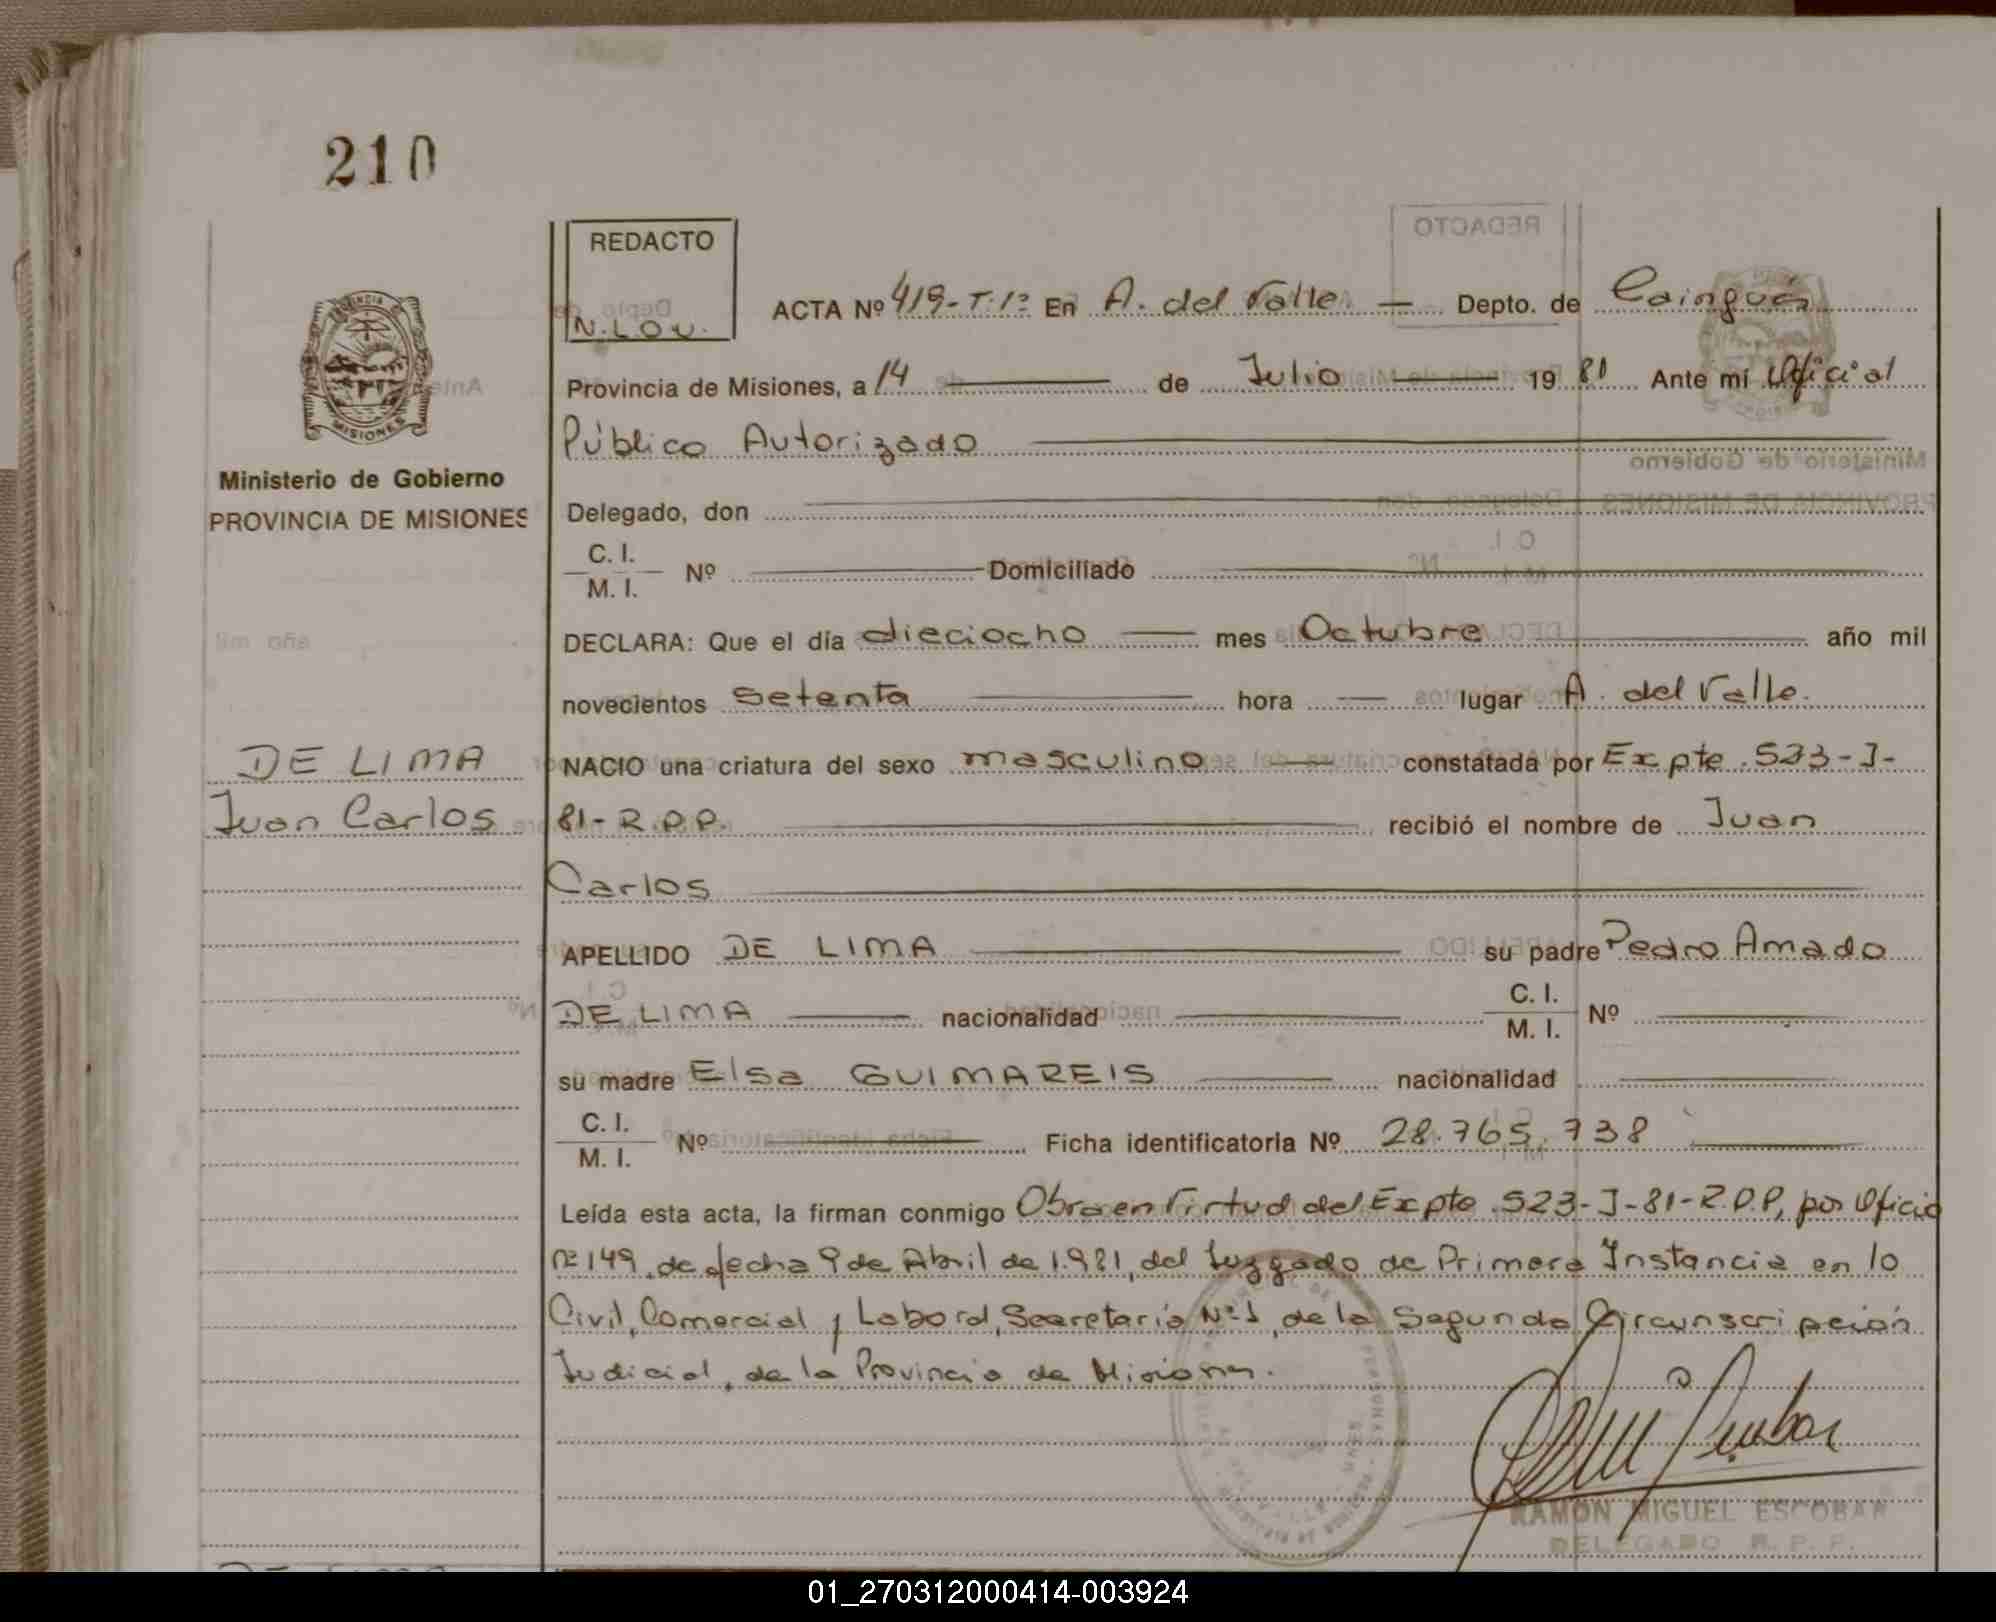 210
REDACTO
N.L.O.V.
ACTA Nº 419-T.1º En A. del Valle — Depto. de Cainguás
Provincia de Misiones, a 14 de Julio 19 81 Ante mí Oficial
Público Autorizado
PROVINCIA
MISIONES
Ministerio de Gobierno
PROVINCIA DE MISIONES
Delegado, don
C. I.
M. I. Nº Domiciliado
DECLARA: Que el día dieciocho mes Octubre año mil
novecientos setenta hora — lugar A. del Valle.
DE LIMA
Juan Carlos
NACIO una criatura del sexo masculino constatada por Expte. 523-J-
81-R.P.P. recibió el nombre de Juan
Carlos
APELLIDO DE LIMA su padre Pedro Amado
DE LIMA nacionalidad C. I.
M. I. Nº
su madre Elsa GUIMAREIS nacionalidad
C. I.
M. I. Nº Ficha identificatoria Nº 28.765.738
Leída esta acta, la firman conmigo Obra en Virtud del Expte. 523-J-81-R.P.P, por Oficio
Nº 149, de fecha 9 de Abril de 1.981, del Juzgado de Primera Instancia en lo
Civil, Comercial y Laboral, Secretaría Nº 1, de la Segunda Circunscripción
Judicial, de la Provincia de Misiones.
RAMON MIGUEL ESCOBAR
DELEGADO R. P. P.
01_270312000414-003924